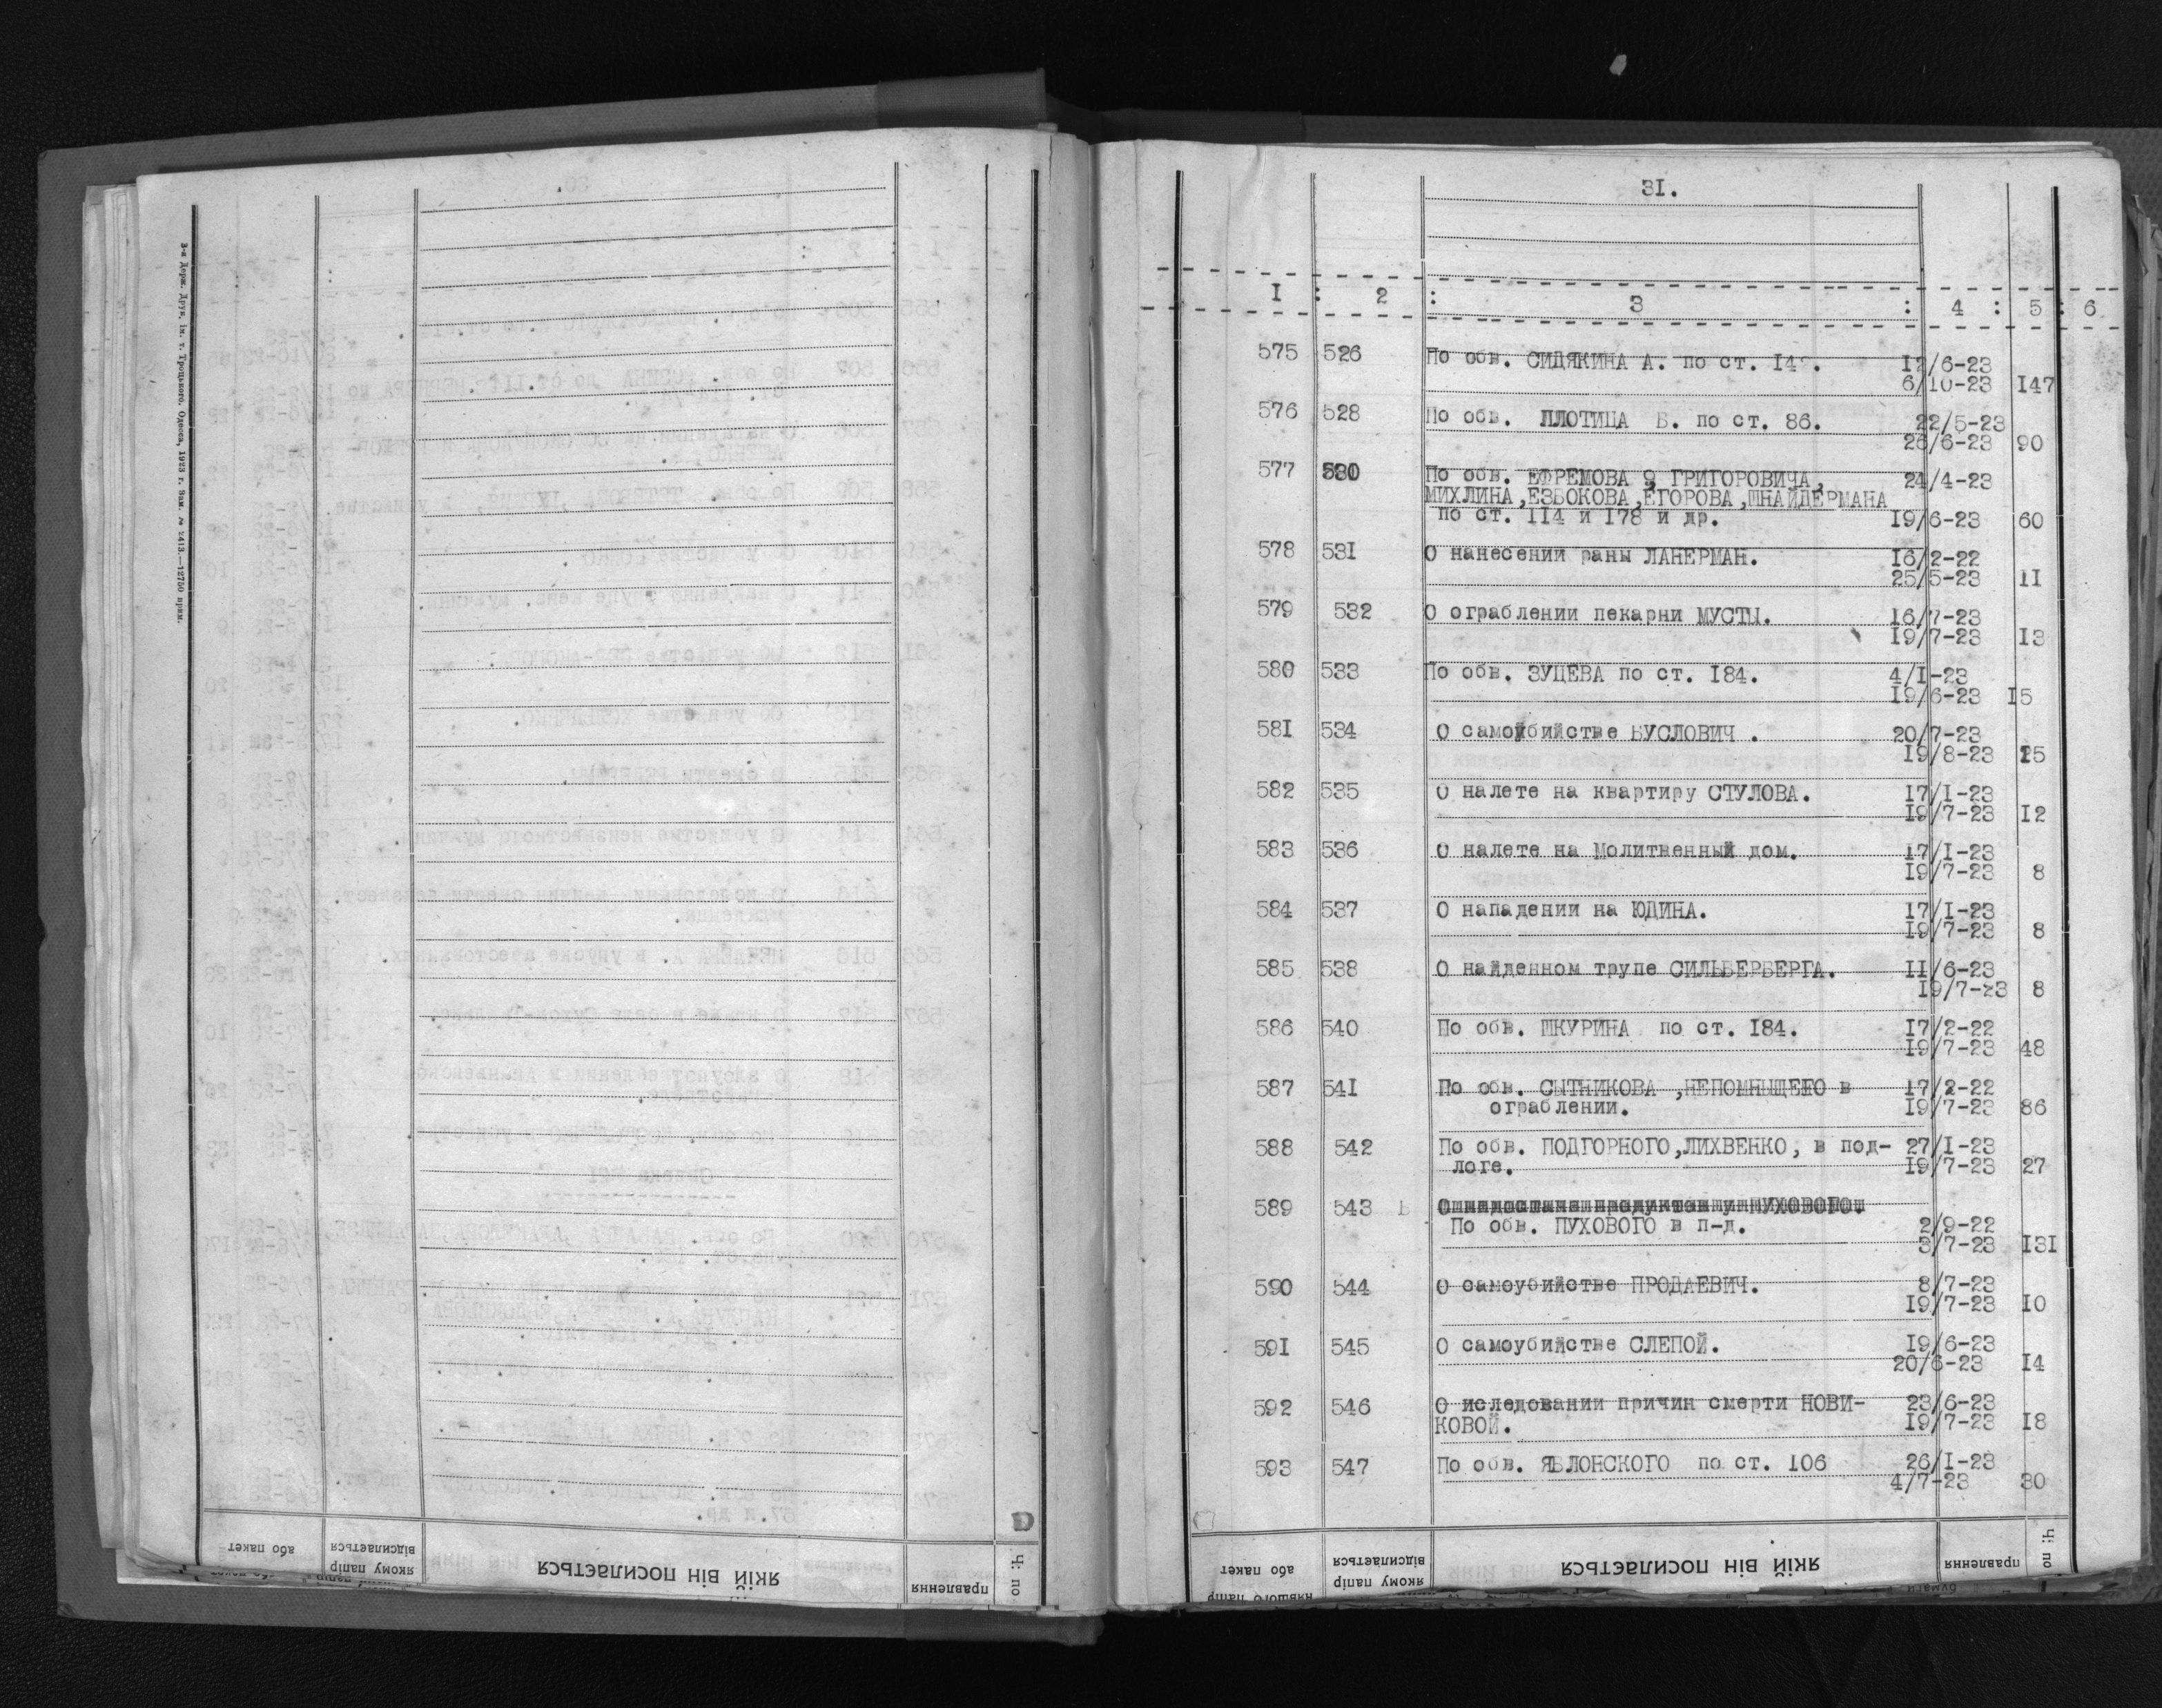 3-я Держ. Друк. ім. т. Троцького. Одесса, 1923 г. Зак. № 2413.—12750 прим.
або пакет
якому папір
відсилається
якій він посилається
правлення
Ч. по
31.
I : 2 : 3 : 4 : 5 : 6
575 526 По обв. СИДЯКИНА А. по ст. 147. 12/6-23
6/10-23 147
576 528 По обв. ПЛОТИЦА Б. по ст. 86. 22/5-23
26/6-23 90
577 530 По обв. ЕФРЕМОВА, ГРИГОРОВИЧА, 24/4-23
МИХЛИНА,ЕЗБОКОВА,ЕГОРОВА,ШНАЙДЕРМАНА
по ст. 114 и 178 и др. 19/6-23 60
578 531 О нанесении раны ЛАНЕРМАН. 16/2-22
25/5-23 11
579 532 О ограблении пекарни МУСТЫ. 16/7-23
19/7-23 13
580 533 По обв. ЗУЦЕВА по ст. 184. 4/I-23
19/6-23 15
581 534 О самоубийстве БУСЛОВИЧ . 20/7-23
19/8-23 25
582 535 О налете на квартиру СТУЛОВА. 17/I-23
19/7-23 12
583 536 О налете на Молитвенный дом. 17/I-23
19/7-23 8
584 537 О нападении на ЮДИНА. 17/I-23
19/7-23 8
585 538 О найденном трупе СИЛЬБЕРБЕРГА. 11/6-23
19/7-23 8
586 540 По обв. ШКУРИНА по ст. 184. 17/2-22
19/7-23 48
587 541 По обв. СЫТНИКОВА ,НЕПОМНЫЩЕГО в 17/2-22
ограблении. 19/7-23 86
588 542 По обв. ПОДГОРНОГО,ЛИХВЕНКО, в под- 27/I-23
логе. 19/7-23 27
589 543 ПУХОВОГО.
По обв. ПУХОВОГО в п-д. 2/9-22
3/7-23 131
590 544 О самоубийстве ПРОДАЕВИЧ. 8/7-23
19/7-23 10
591 545 О самоубийстве СЛЕПОЙ. 19/6-23
20/6-23 14
592 546 О иследовании причин смерти НОВИ- 23/6-23
КОВОЙ. 19/7-23 18
593 547 По обв. ЯБЛОНСКОГО по ст. 106 26/I-23
4/7-23 30
або пакет
якому папір
відсилається
якій він посилається
правлення
Ч. по